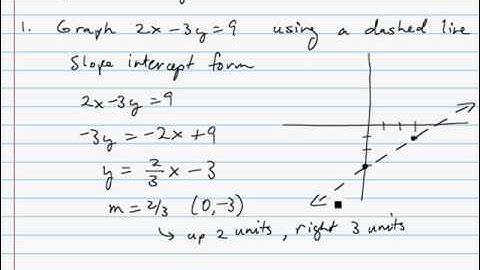 1. Graph 2x-3y=9 using a dashed line
Slope intercept form
2x-3y=9
-3y=-2x+9
y = 2/3 x - 3
m = 2/3 (0,-3)
↳ up 2 units, right 3 units